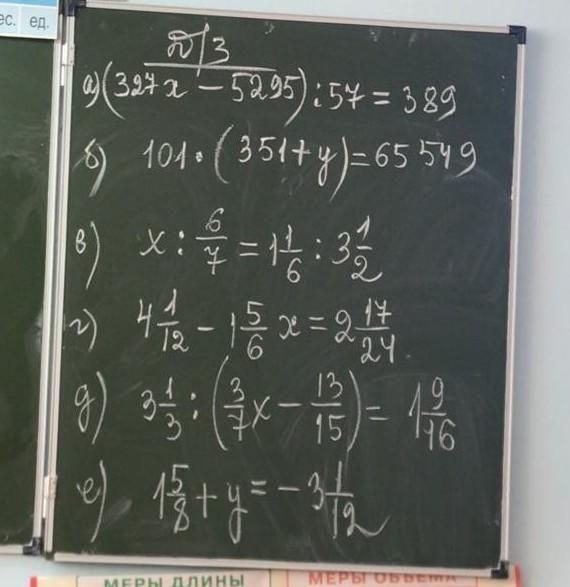 ес. ед.
Д/З
а) (327x − 5295) : 57 = 389
б) 101 · (351 + y) = 65549
в) x : 6/7 = 1 1/6 : 3 1/2
г) 4 1/12 − 1 5/6 x = 2 17/24.
д) 3 1/3 : (3/7 x − 13/15) = 1 9/16
е) 1 5/8 + y = −3 1/12
МЕРЫ ДЛИНЫ МЕРЫ ОБЪЕМА